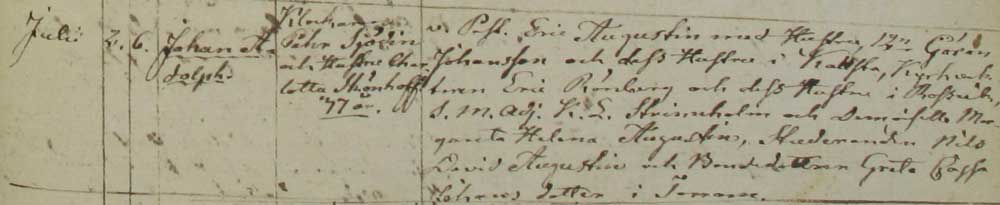 Julii 2. 6. Johan A-
dolph.
Klockaren
Pehr Sjödin
och Hustru Char-
lotta Strönhoff
77 år.
v. Past. Eric Augustin med Hustru, Göran
Johansson och dess Hustru i Kyrkovärd-
ren Eric Rönberg och dess Hustru i
S. M. Adj. K. E. Strinnholm och Demoiselle Mar-
gareta Helena Augustin, Studeranden Nils
David Augustin och Bondedottren Greta Cajsa
Johans dotter i